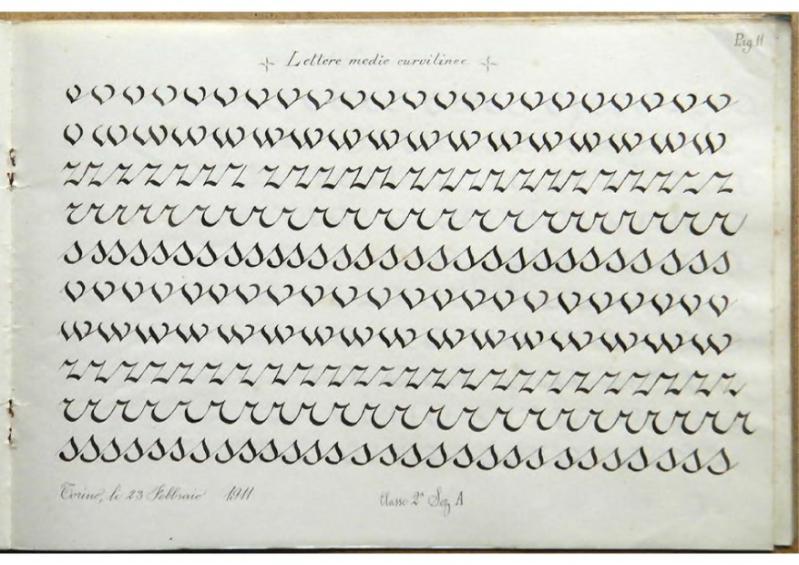 Pag 11
Lettere medie curvilinee
v v v v v v v v v v v v v v v v v v v v v v
v w w w w w w w w w w w w w w w w w
z z z z z z z z z z z z z z z z z z z z z z z z
r r r r r r r r r r r r r r r r r r r r r r r r
s s s s s s s s s s s s s s s s s s s s s s s s s s s s
v v v v v v v v v v v v v v v v v v v v v v
w w w w w w w w w w w w w w w w w w
z z z z z z z z z z z z z z z z z z z z z z z z
r r r r r r r r r r r r r r r r r r r r r r r r
s s s s s s s s s s s s s s s s s s s s s s s s s s s s
Torino, li 23 Febbraio 1911
Classe 2ª Sez A